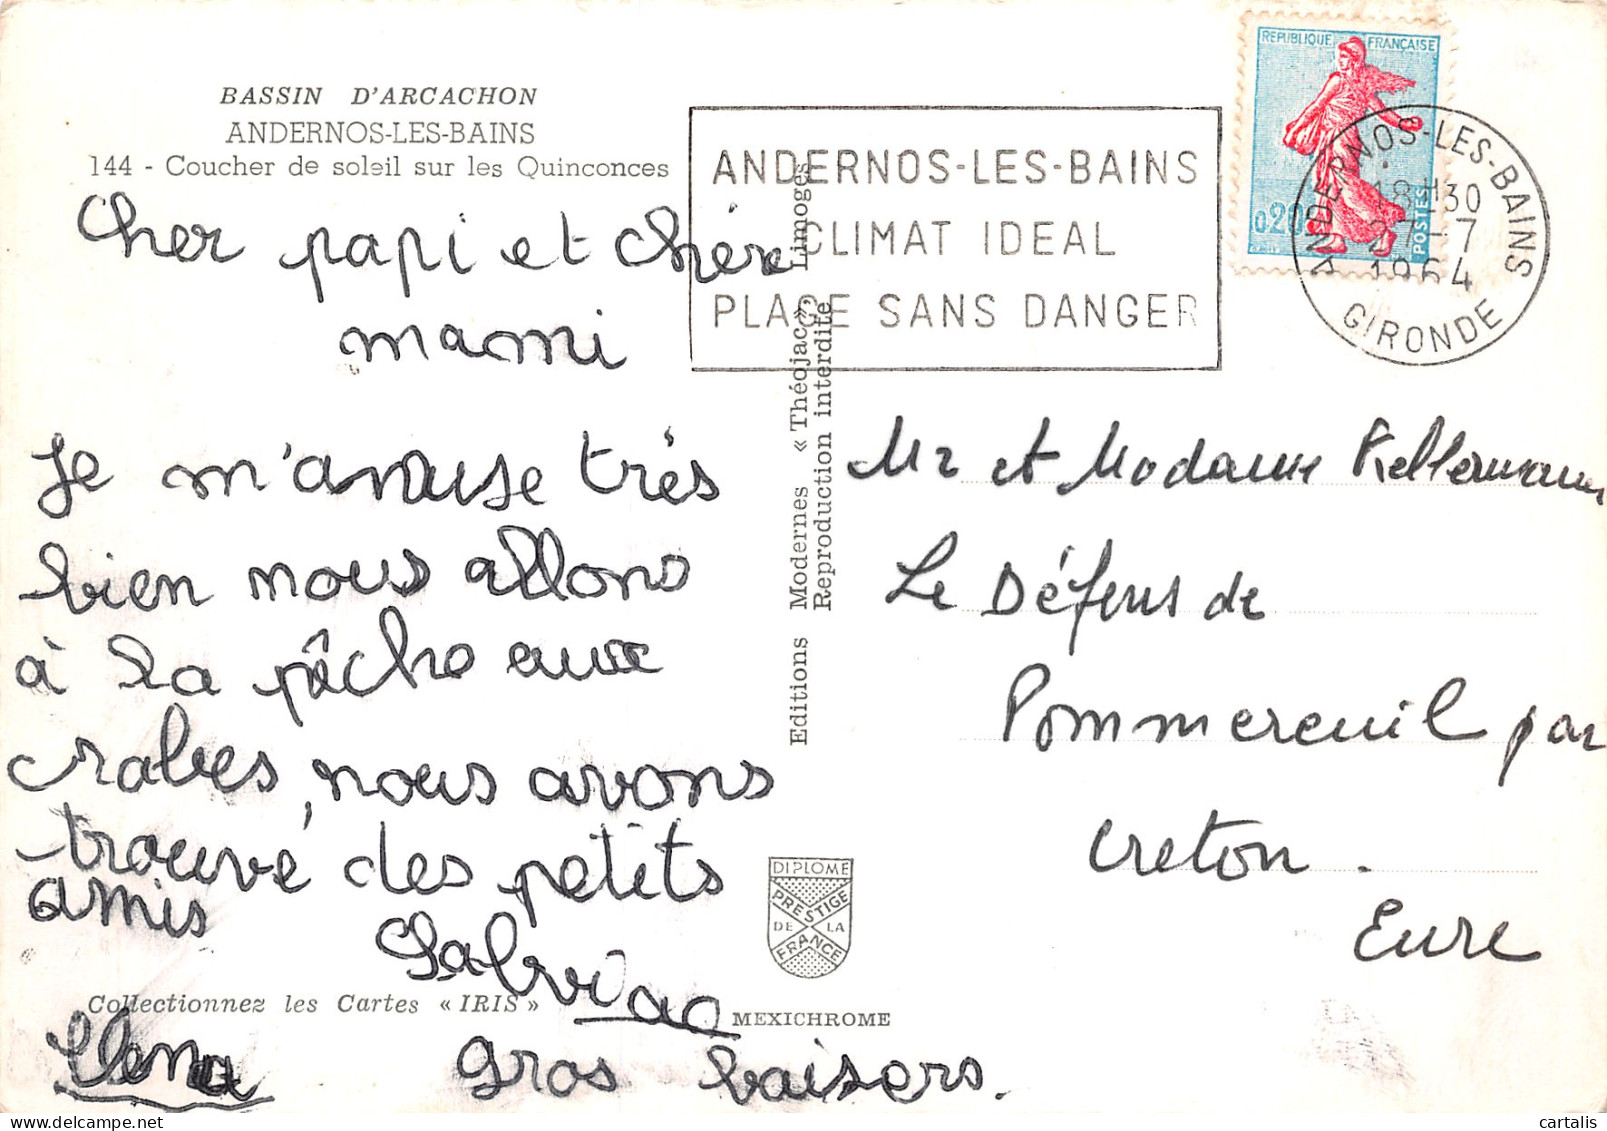 BASSIN D'ARCACHON
ANDERNOS-LES-BAINS
144 - Coucher de soleil sur les Quinconces
Cher papi et chère
mami
Je m'amuse très
bien nous allons
à la pêche aux
crabes, nous avons
trouvé des petits
amis
Gros baisers.
Collectionnez les Cartes « IRIS »
MEXICHROME
DIPLOME
PRESTIGE
DE LA
FRANCE
Editions Modernes « Théojac » Limoges
Reproduction interdite
ANDERNOS-LES-BAINS
CLIMAT IDEAL
PLAGE SANS DANGER
REPUBLIQUE FRANÇAISE
0,20
POSTES
ANDERNOS-LES-BAINS
18H30
27-7
1964
GIRONDE
Mr et Madame Kellermann
Le Défens de
Pommereuil par
Creton.
Eure
cartalis